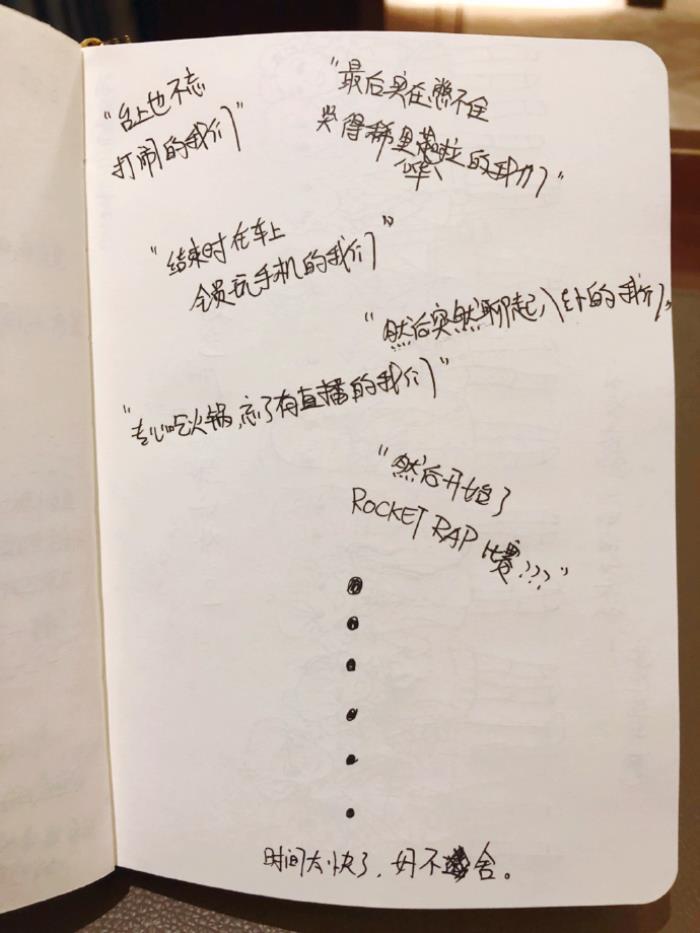 “台上也不忘
打闹的我们”
“最后实在憋不住
哭得稀里哗啦的我们”
“结束时在车上
全员玩手机的我们”
“然后突然聊起八卦的我们”
“专心吃火锅,忘了有直播的我们”
“然后开始了
ROCKET RAP 比赛???”
时间太快了,好不舍。